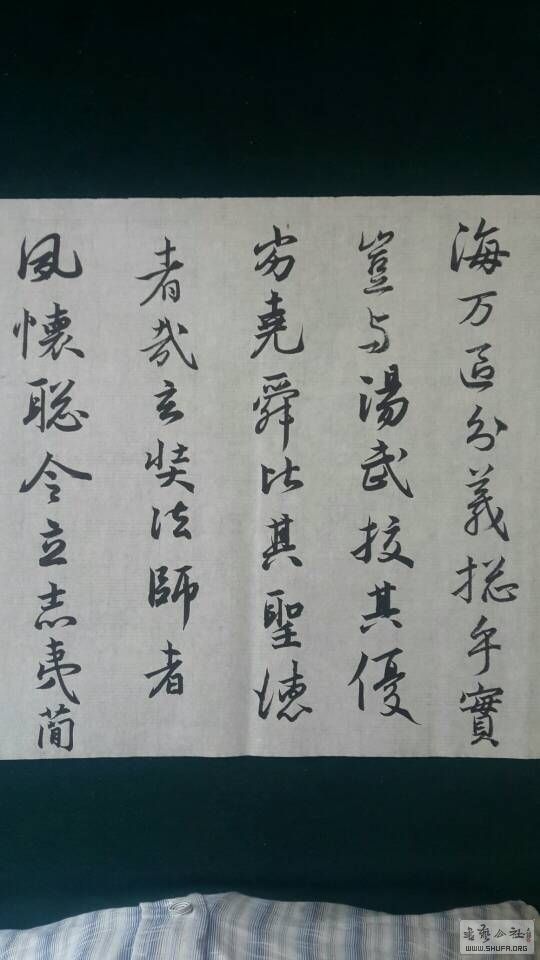 海万區分義揔乎實
豈与湯武挍其優
劣堯舜比其聖德
者哉玄奘法師者
夙懷聡令立志夷簡
书艺公社
WWW.SHUFA.ORG